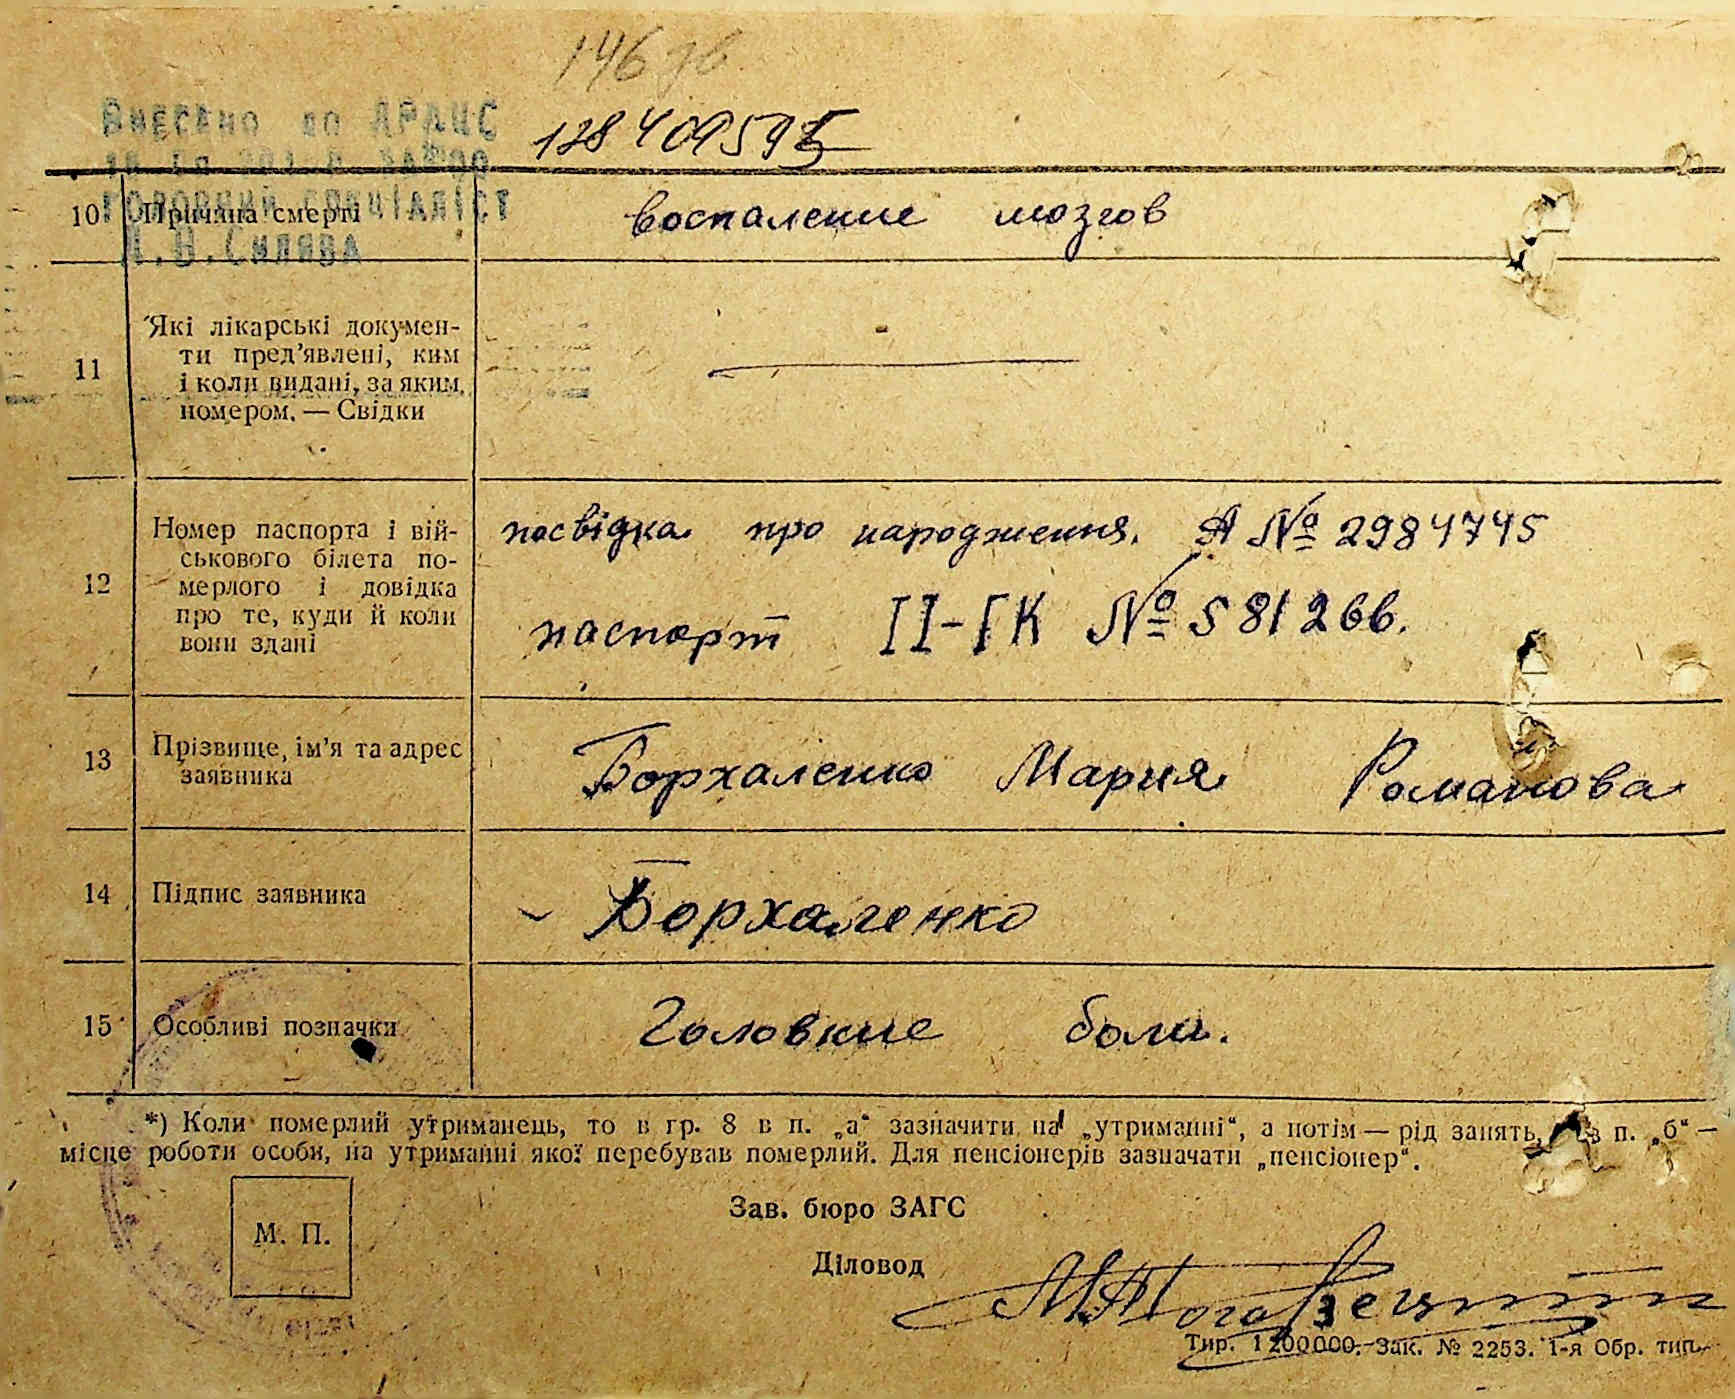 146 зв
128409595
Внесено до ДРАЦС
головний спеціаліст
10 Причина смерті воспаление мозгов
11 Які лікарські докумен-
ти пред’явлені, ким
і коли видані, за яким
номером. — Свідки
12 Номер паспорта і вій-
ськового білета по-
мерлого і довідка
про те, куди й коли
вони здані
посвідка про народження. А № 2984745
паспорт II-ГК № 581266.
13 Прізвище, ім’я та адрес
заявника
Борхаленко Мария Романова
14 Підпис заявника Борхаленко
15 Особливі позначки Головние боли.
*) Коли померлий утриманець, то в гр. 8 в п. „а“ зазначити на „утриманні“, а потім — рід занять, в п. „б“ —
місце роботи особи, на утриманні якої перебував померлий. Для пенсіонерів зазначати „пенсіонер“.
М. П.
Зав. бюро ЗАГС
Діловод
Тир. 1200000. Зак. № 2253. 1-я Обр. тип.